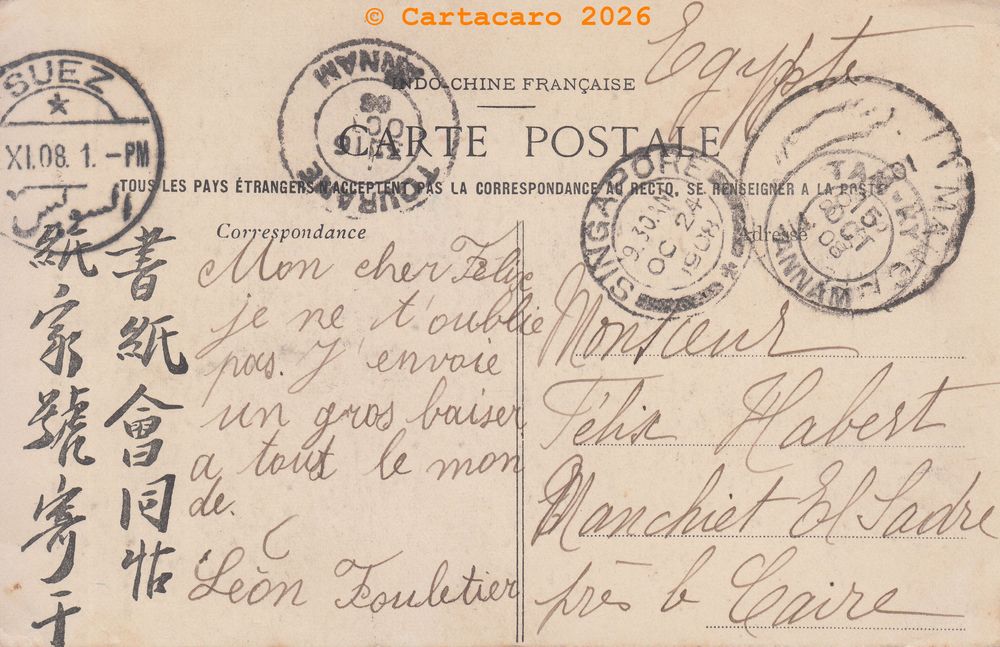 © Cartacaro 2026
Egypte
INDO-CHINE FRANÇAISE
CARTE POSTALE
TOUS LES PAYS ÉTRANGERS N'ACCEPTENT PAS LA CORRESPONDANCE AU RECTO. SE RENSEIGNER A LA POSTE
SUEZ
XI.08. 1.-PM
السويس
TOURANE
ANNAM
OCT
08
SINGAPORE
9.30 AM
OC 24
1908
TAM-KY
ANNAM
15
OCT
08
Correspondance
Mon cher Félix
je ne t'oublie
pas. J'envoie
un gros baiser
a tout le mon
de.
Léon Fouletier
Adresse
Monsieur
Félix Habert
Manchiet El Sadre
près le Caire
書紙會同怗
紙家號寄于